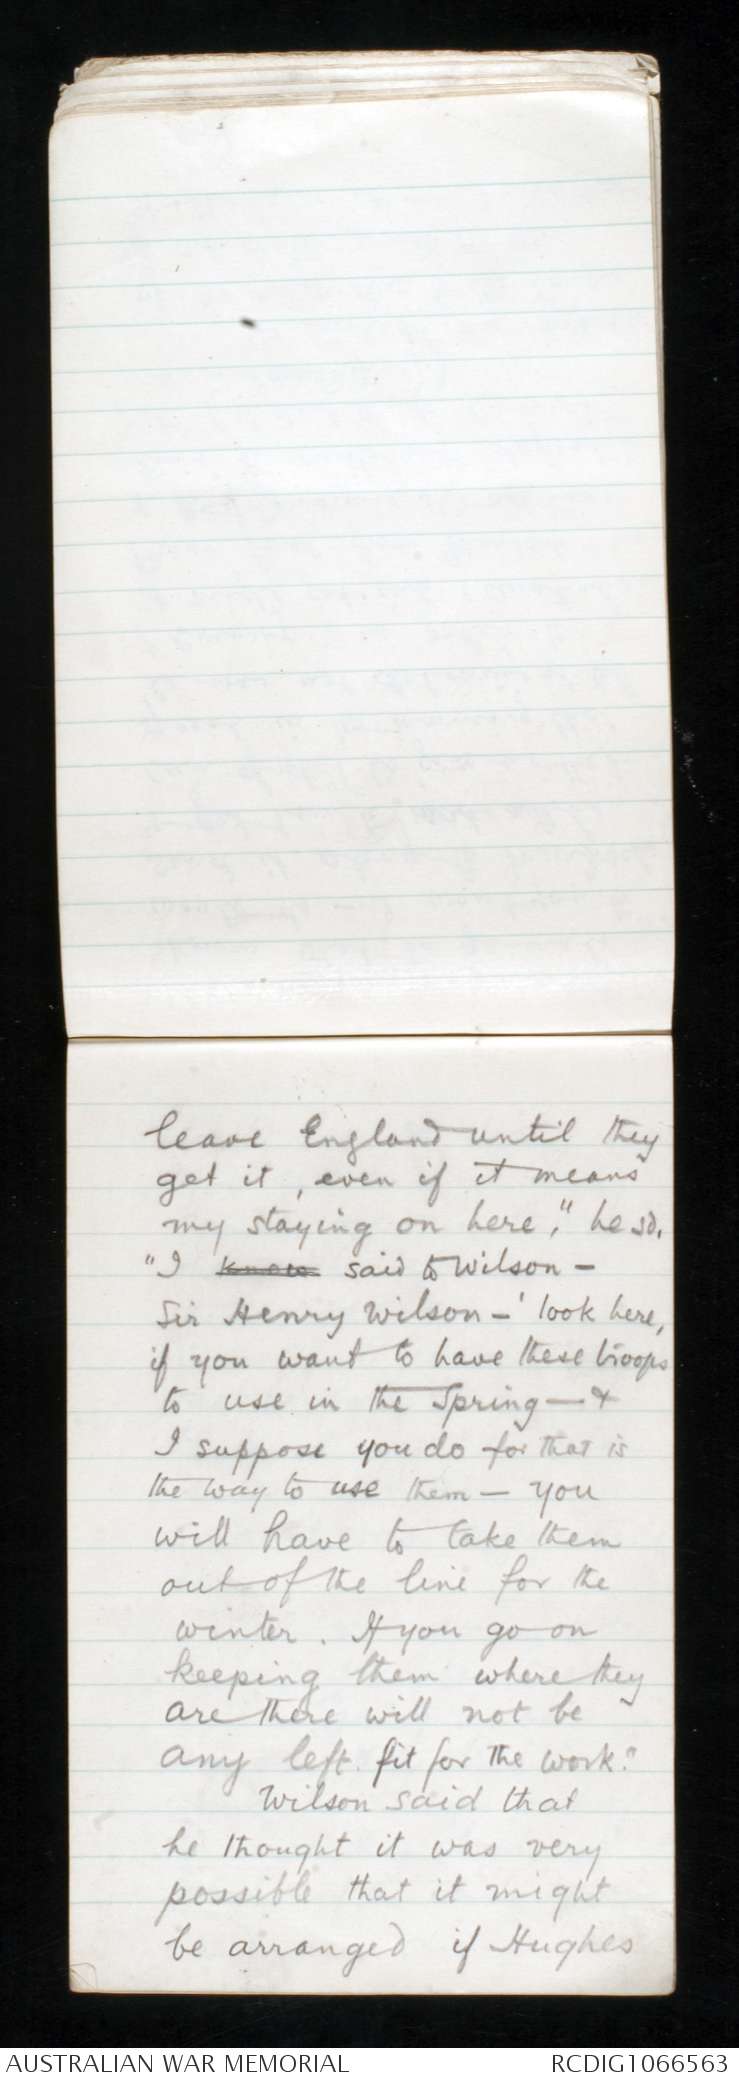 leave England until they
get it, even if it means
my staying on here," he sd.
"I ~~know~~ said to Wilson –
Sir Henry Wilson – 'look here,
if you want to have these troops
to use in the Spring – &
I suppose you do for that is
the way to use them – you
will have to take them
out of the line for the
winter. If you go on
keeping them where they
are there will not be
any left fit for the work."
Wilson said that
he thought it was very
possible that it might
be arranged if Hughes
AUSTRALIAN WAR MEMORIAL
RCDIG1066563